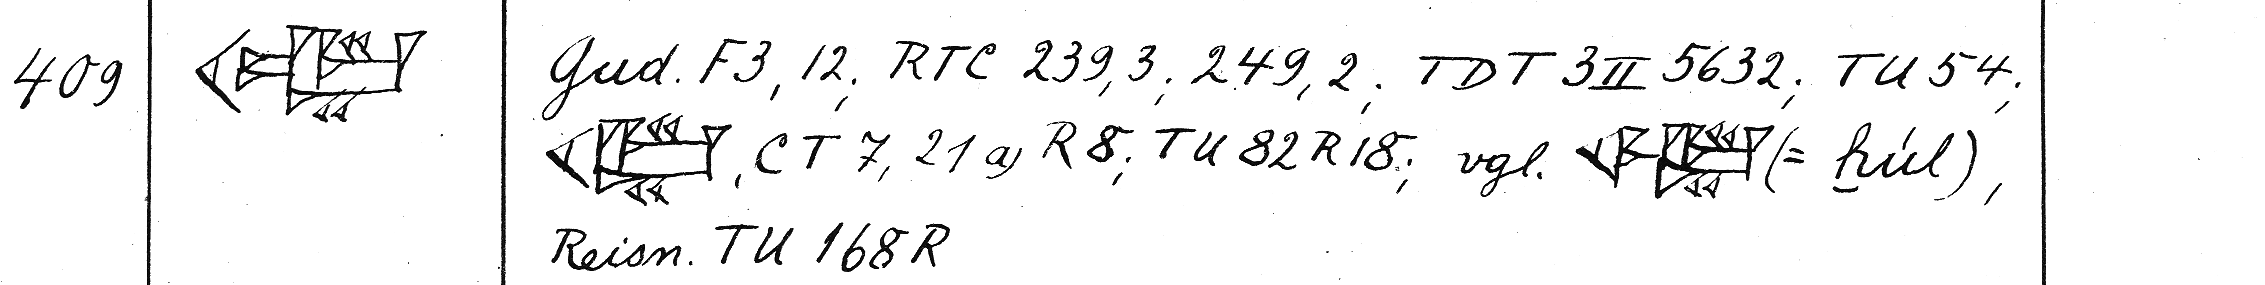 409 Gud. F3, 12; RTC 239,3; 249,2; TDT 3II 5632; TU 54;
, CT 7, 21 a) R 8; TU 82 R 18; vgl. (= ḫúl),
Reisn. TU 168 R